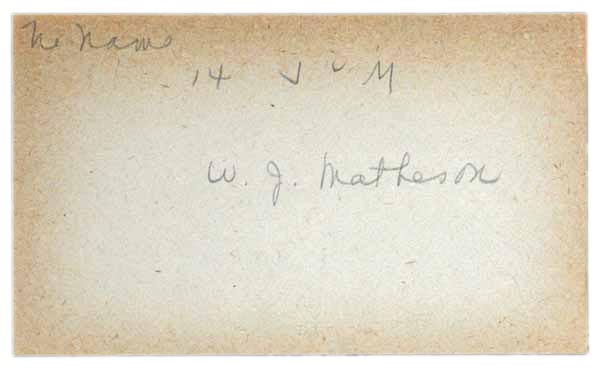 No Name
14 J " M
W. J. Matheson